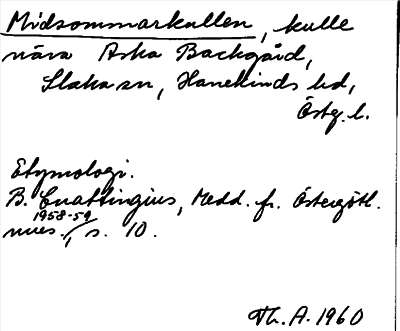 Midsommarkullen, kulle
nära Aska Backgård,
Slaka sn, Hanekinds hd,
Östg. l.
Etymologi.
B. Cnattingius, Medd. fr. Östergötl.
mus. 1958-59, s. 10.
Th. A. 1960